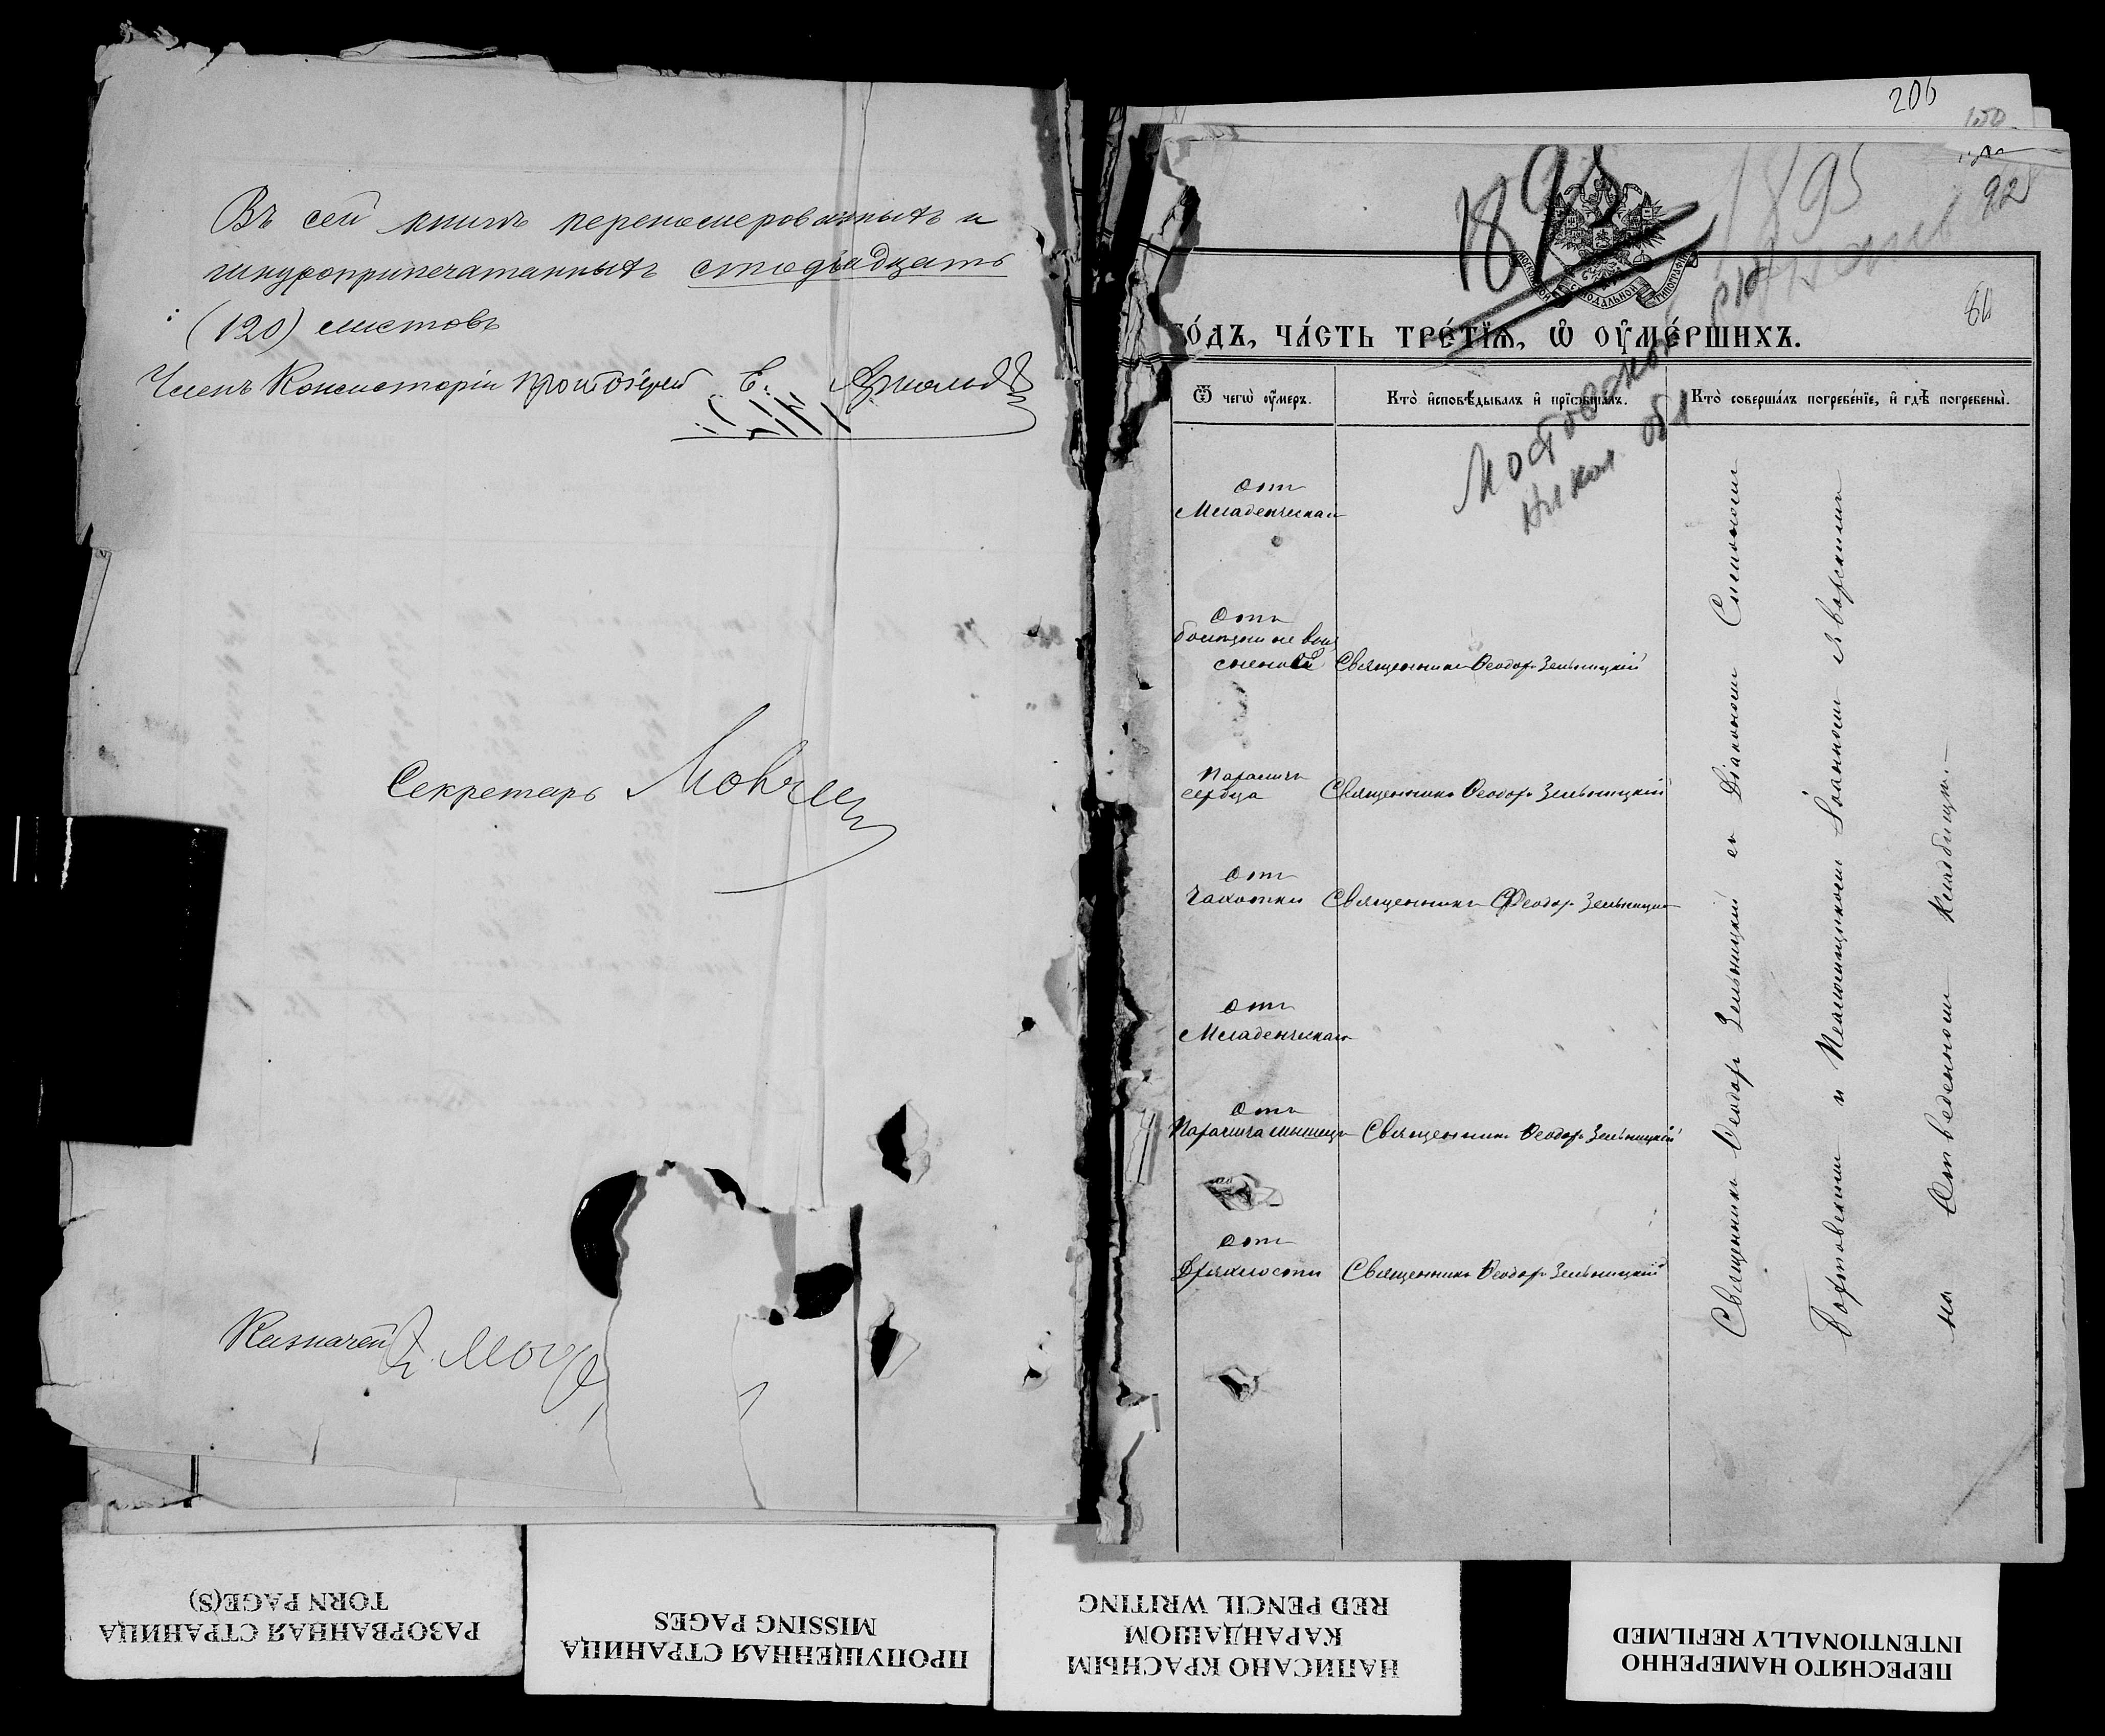 Въ сей книгѣ перенумерованныхъ и
шнуроприпечатанныхъ сто двадцать
(120) листовъ
Членъ Консисторіи Протоіерей Е. Арнольдъ
Секретарь
Казначей
206
92
1895
1895
МОСКОВСКОЙ СѴНОДАЛЬНОЙ ТИПОГРАФІИ
го́дъ, ча́сть тре́тїѧ, ѡ҆ ᲂу҆ме́ршихъ.
Ѿ чегѡ̀ ᲂу҆́меръ.
Кто̀ и҆сповѣ́дывалъ и҆ прїѡбща́лъ.
Кто̀ соверша́лъ погребе́нїе, и҆ гдѣ̀ погребены̀.
отъ
Младенческаго
отъ
Священникъ Ѳеодоръ Зельницкій
Параличъ
сердца
Священникъ Ѳеодоръ Зельницкій
отъ
Чахотки
Священникъ Ѳеодоръ Зельницкій
отъ
Младенческаго
отъ
Паралича
Священникъ Ѳеодоръ Зельницкій
отъ
Дряхлости
Священникъ Ѳеодоръ Зельницкій
Священникъ Ѳеодоръ Зельницкій съ Діакономъ Симономъ
и Псаломщикомъ Іоанномъ Яворскимъ
на Отведенномъ Кладбищѣ.
РАЗОРВАННАЯ СТРАНИЦА
TORN PAGE(S)
ПРОПУЩЕННАЯ СТРАНИЦА
MISSING PAGES
НАПИСАНО КРАСНЫМ
КАРАНДАШОМ
RED PENCIL WRITING
ПЕРЕСНЯТО НАМЕРЕННО
INTENTIONALLY REFILMED